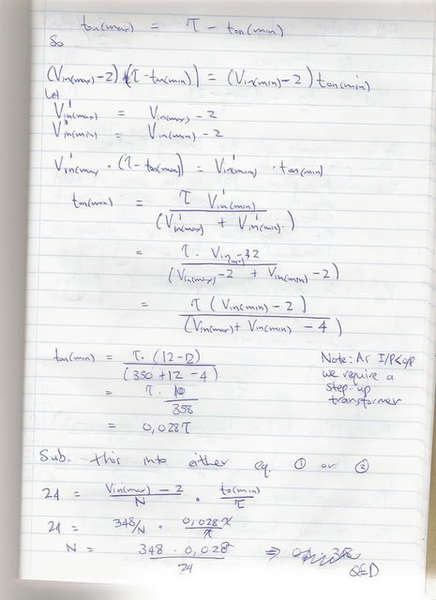 ton(max) = τ - ton(min)
So
(Vin(max)-2)(τ-ton(min)) = (Vin(min)-2) ton(min)
Let
V'in(max) = Vin(max) - 2
V'in(min) = Vin(min) - 2
V'in(max · (τ - ton(min)) = V'in(min) · ton(min)
ton(min) = τ V'in(min) / (V'in(max) + V'in(min))
= τ · Vin(min) - 2 / (Vin(max) - 2 + Vin(min) - 2)
= τ (Vin(min) - 2) / (Vin(max) + Vin(min) - 4)
ton(min) = τ · (12 - 2) / (350 + 12 - 4)
= τ · 10 / 358
= 0,028τ
Note: As I/P<O/P
we require a
step-up
transformer
Sub. this into either eq. ① or ②
24 = Vin(max) - 2 / N · to(min) / τ
24 = 348/N · 0,028τ / τ
N = 348 · 0,028 / 24 ⇒
QED